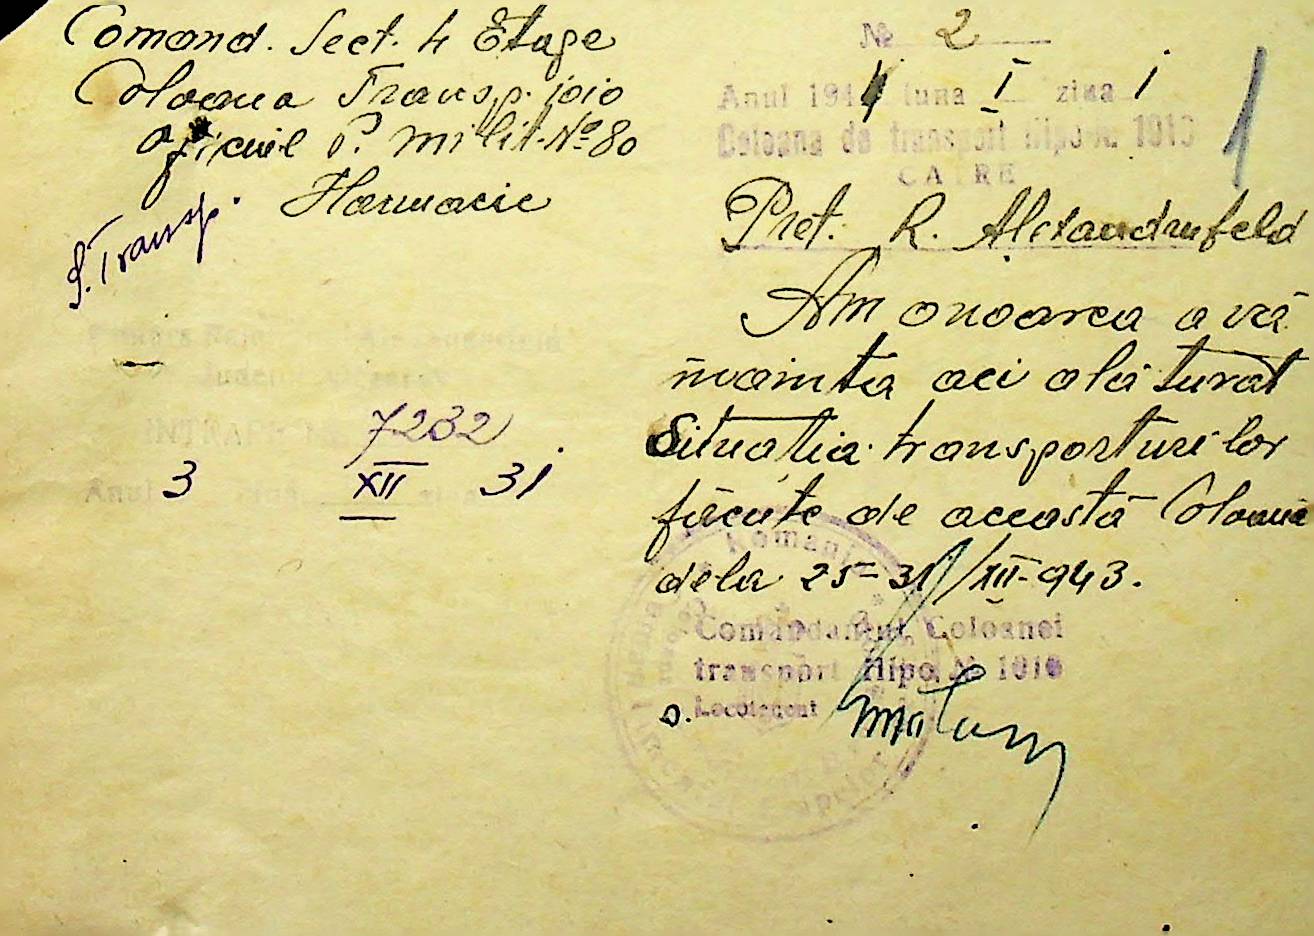 Comand. Sect. 4 Etape
Coloana Transp. 1010
Oficiul P. milit. No 80
Harmacie
S. Transp.
7232
3 XII 31
№ 2
Anul 194 luna I ziua 1
Coloana de transport Hipo №. 1010
CATRE
Pret. R. Alexandrufeld
Am onoarea a vă
înainta aci alăturat
Situația transporturilor
făcute de această Coloană
dela 25-31/XII-943.
Comandantul Coloanei
transport Hipo № 1010
Locotenent
1